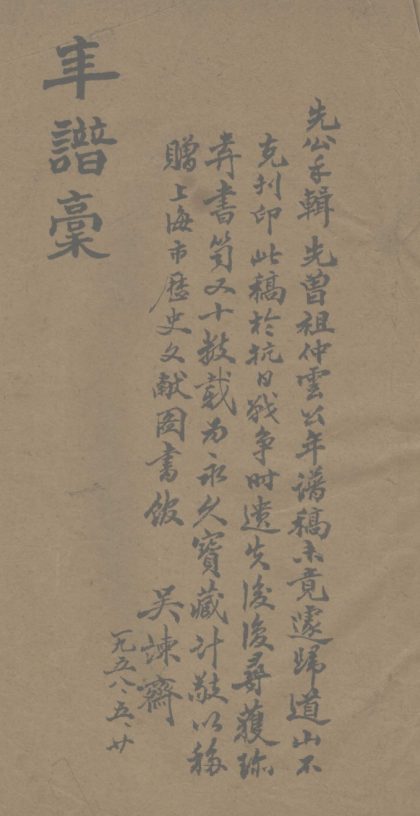 年譜稾
先公手輯 先曾祖仲雲公年譜稿未竟遽歸道山不
克刋印此稿於抗日戰争时遺失後復尋獲珎
弆書笥又十数载为永久寶藏计敬以移
贈上海市歷史文献图書馆 吴諫齋
一九五八、五、廿